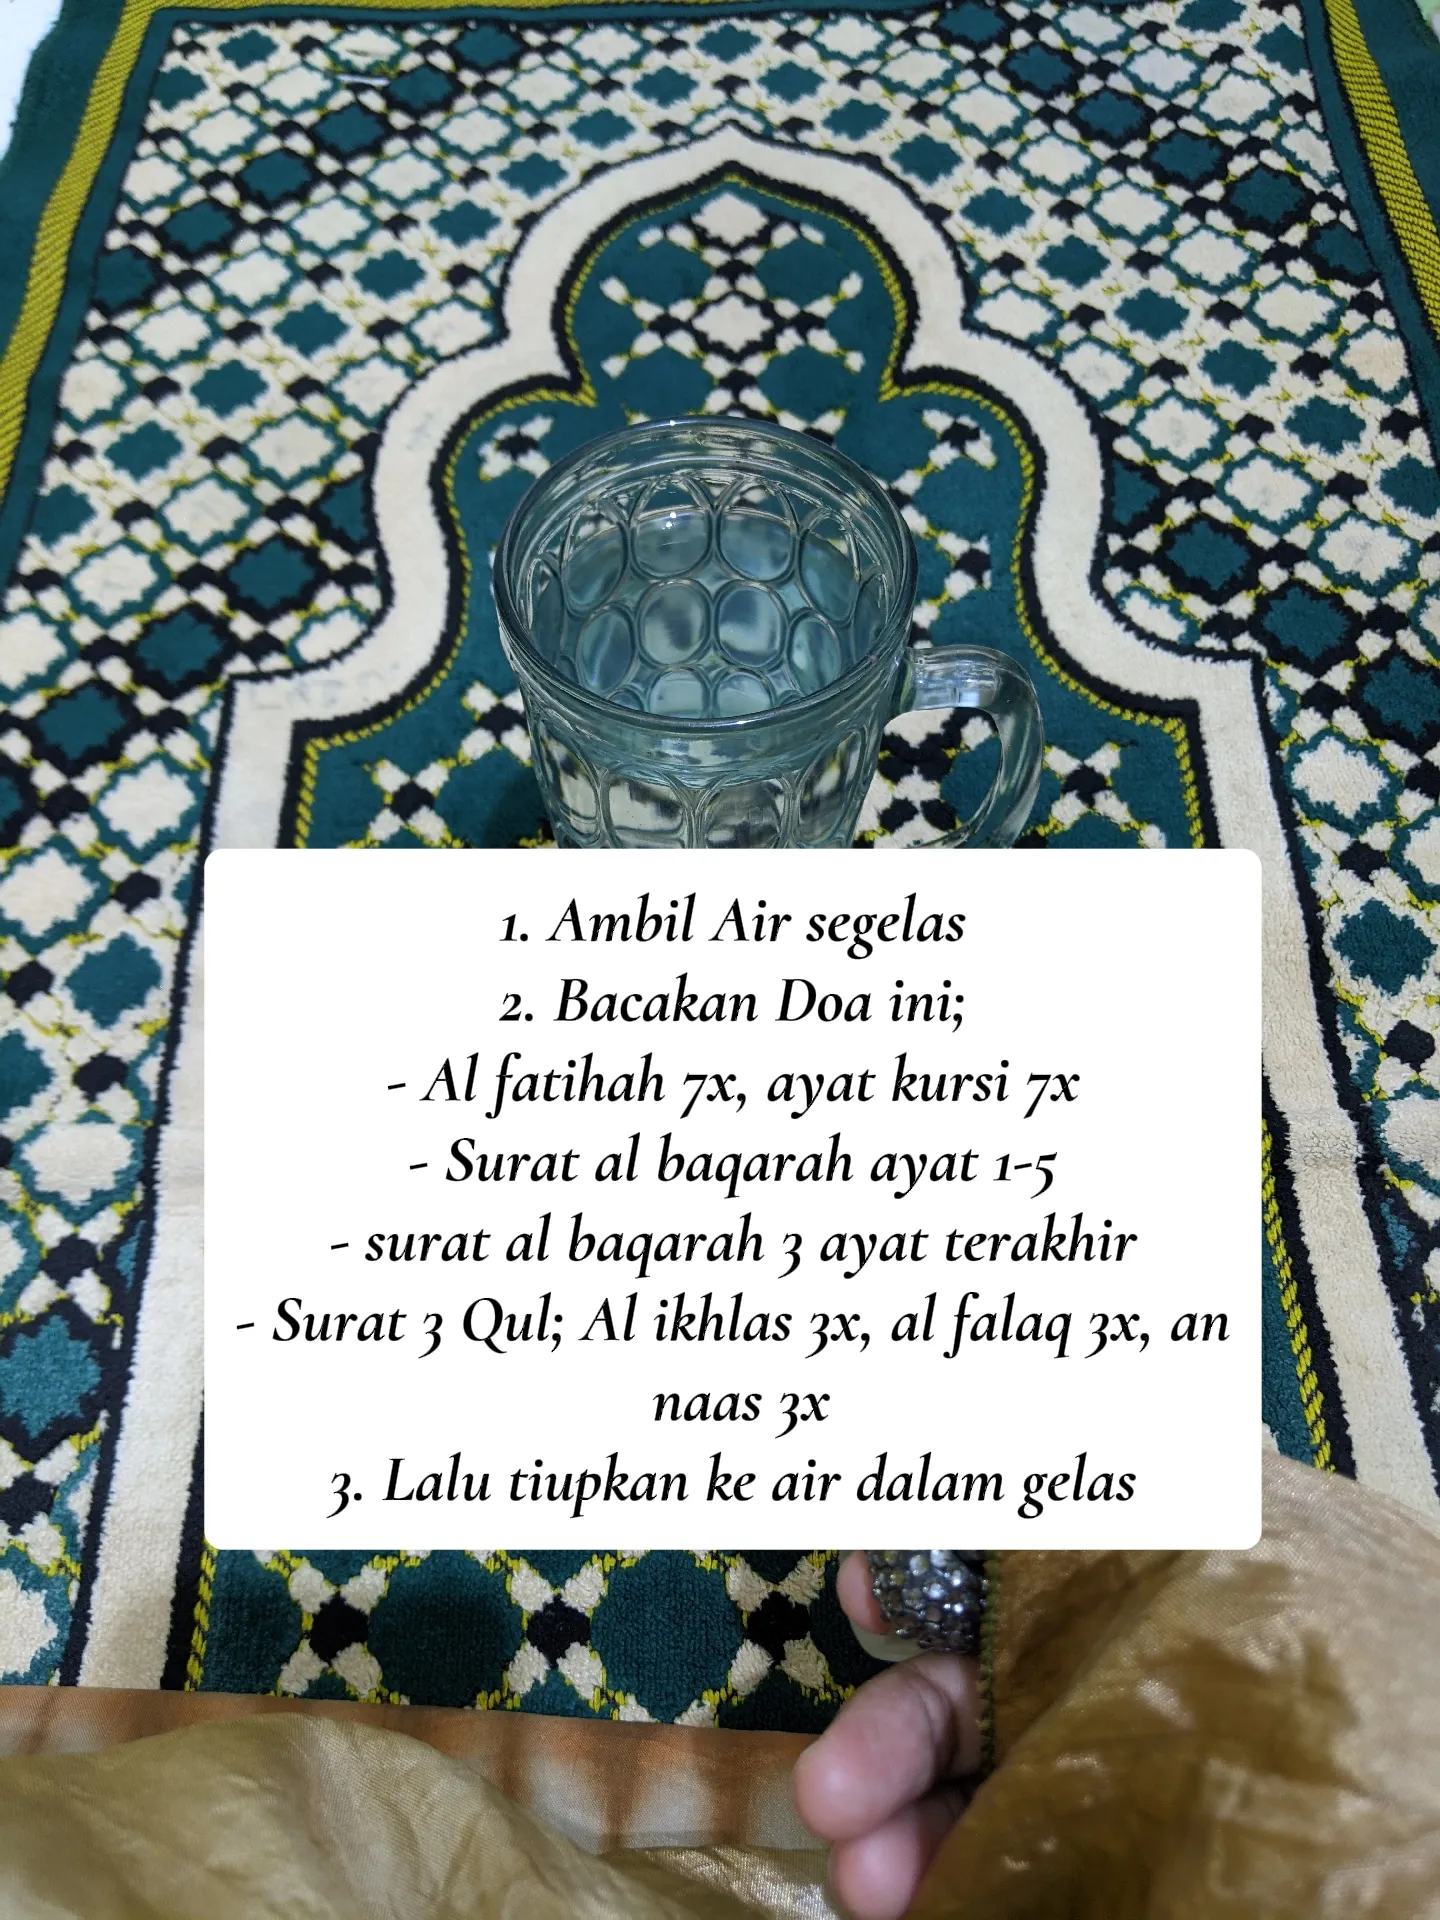 1. Ambil Air segelas
2. Bacakan Doa ini;
- Al fatihah 7x, ayat kursi 7x
- Surat al baqarah ayat 1-5
- surat al baqarah 3 ayat terakhir
- Surat 3 Qul; Al ikhlas 3x, al falaq 3x, an
naas 3x
3. Lalu tiupkan ke air dalam gelas